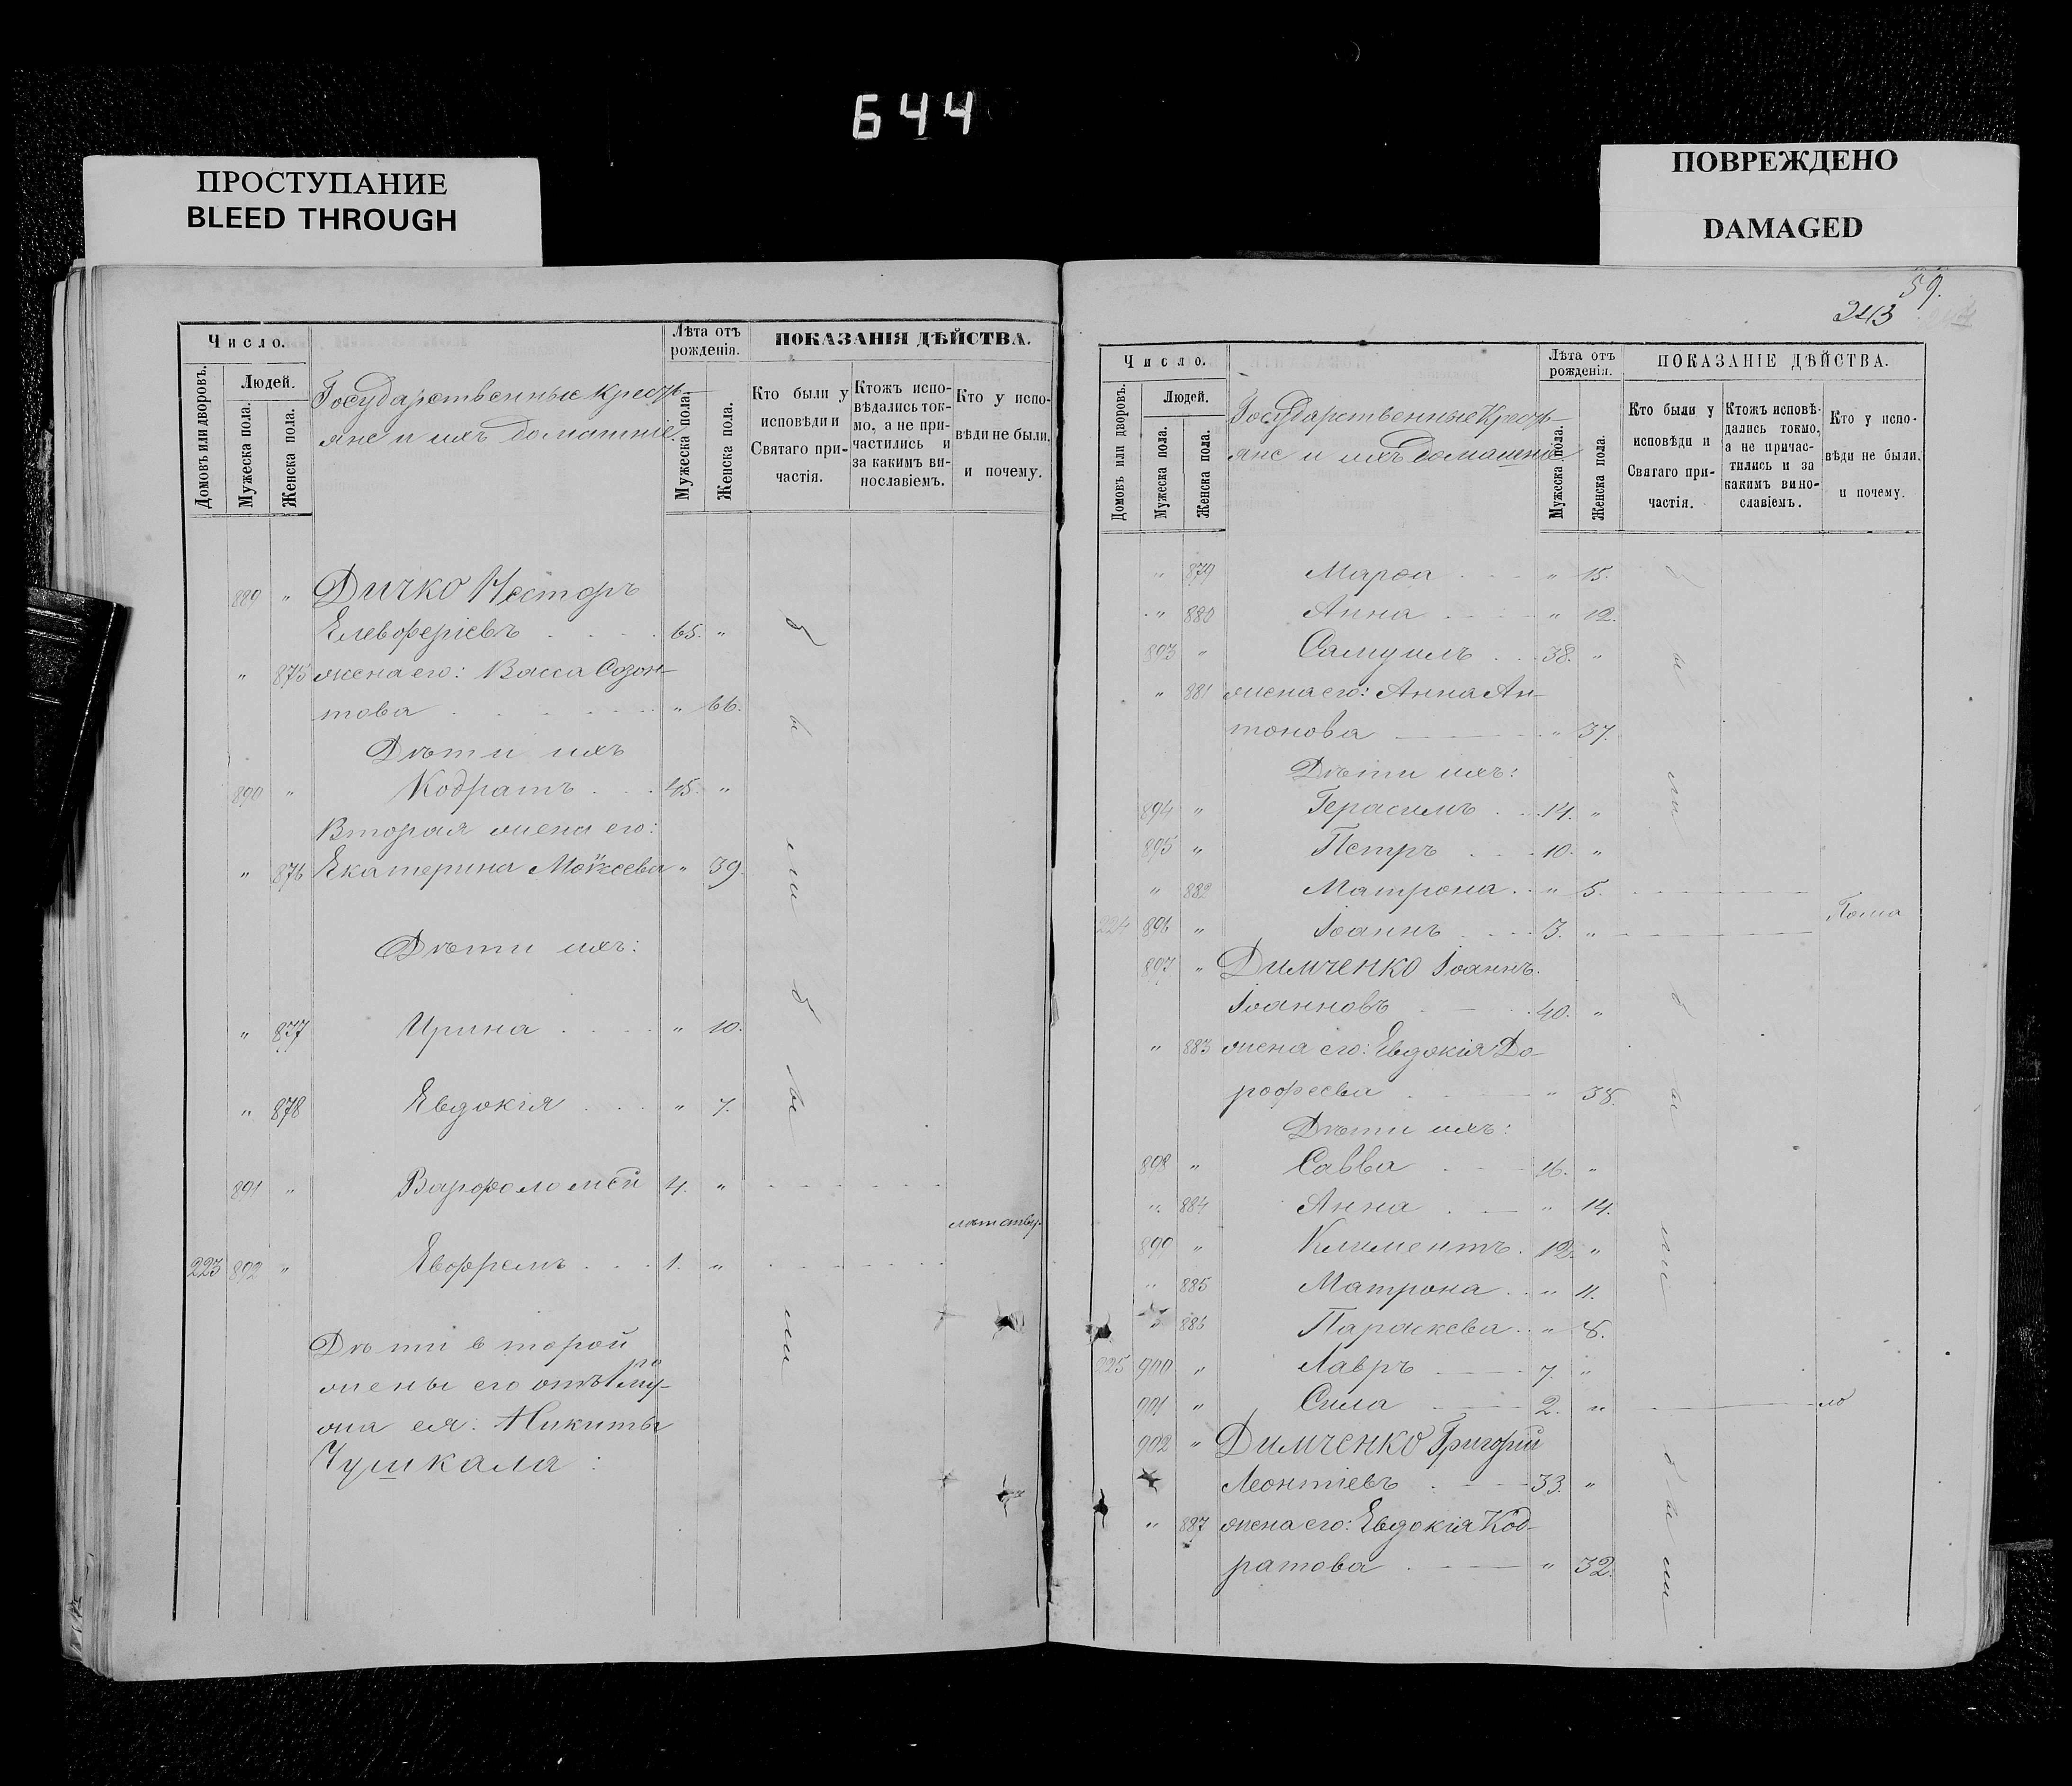 644
ПРОСТУПАНИЕ
BLEED THROUGH
ПОВРЕЖДЕНО
DAMAGED
Число.
Людей.
Домовъ или дворовъ.
Мужеска пола.
Женска пола.
Государственные кресть-
яне и ихъ домашніе.
Лѣта отъ
рожденія.
Мужеска пола.
Женска пола.
ПОКАЗАНІЯ ДѢЙСТВА.
Кто были у
исповѣди и
Святаго при-
частія.
Ктожъ испо-
вѣдались ток-
мо, а не при-
частились и
за какимъ ви-
нославіемъ.
Кто у испо-
вѣди не были.
и почему.
889 " Дичко Несторъ
Елевферіевъ 65. "
" 875 жена его: Васса Созон-
това " 66.
Дѣти ихъ
890 " Кодратъ 45. "
Вторая жена его:
" 876 Екатерина Моѵсеева " 39.
Дѣти ихъ:
" 877 Ирина " 10.
" 878 Евдокія " 7.
891 " Варфоломей 4. "
223 892 " Евфремъ 1. "
Дѣти второй
жены его отъ
жа ея: Никиты
Чушкала:
были
были
59.
243
Число.
Людей.
Домовъ или дворовъ.
Мужеска пола.
Женска пола.
Государственные Кресть-
яне и ихъ домашніе
Лѣта отъ
рожденія.
Мужеска пола.
Женска пола.
ПОКАЗАНІЕ ДѢЙСТВА.
Кто были у
исповѣди и
Святаго при-
частія.
Ктожъ исповѣ-
дались токмо,
а не причас-
тились и за
какимъ вино-
славіемъ.
Кто у испо-
вѣди не были.
и почему.
" 879 Марѳа " 15.
" 880 Анна " 12.
893 " Самуилъ 38. "
" 881 жена его: Анна Ан-
тонова " 37.
Дѣти ихъ:
894 " Герасимъ 14. "
895 " Петръ 10. "
" 882 Матрона " 5.
224 896 " Іоаннъ 3. "
897 " Димченко Іоаннъ
Іоанновъ 40. "
" 883 жена его: Евдокія До-
рофеева " 38.
Дѣти ихъ:
898 " Савва 16. "
" 884 Анна " 14.
899 " Климентъ 12. "
" 885 Матрона " 11.
" 886 Параскева " 8.
225 900 " Лавръ 7. "
901 " Сила 2. "
902 " Димченко Григорій
Леонтіевъ 33. "
" 887 жена его: Евдокія Код-
ратова " 32.
были
были
были